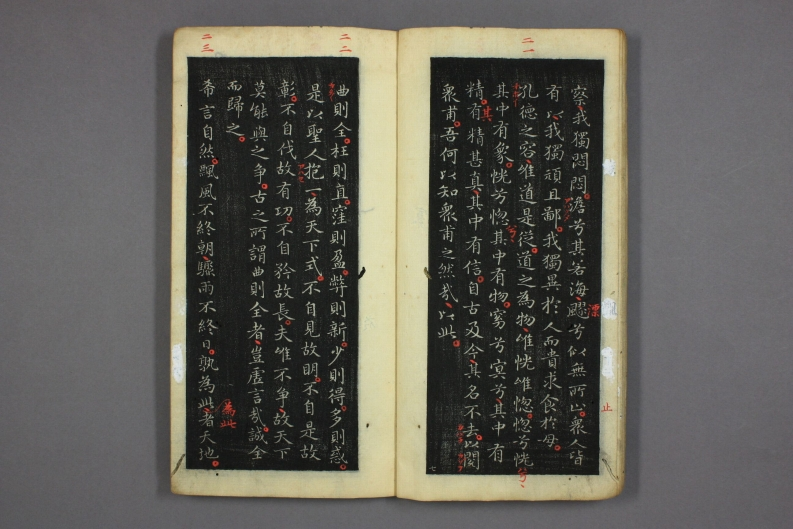 察我獨悶悶澹兮其若海飂兮似無所止衆人皆
有以我獨頑且鄙我獨異於人而貴求食於母
二一
孔德之容惟道是從道之為物惟恍惟惚惚兮恍
其中有象恍兮惚其中有物窈兮冥兮其中有
精有精甚真其中有信自古及今其名不去以閱
衆甫吾何以知衆甫之然哉以此
其
漂
止
七
二二
曲則全枉則直窪則盈弊則新少則得多則惑
是以聖人抱一為天下式不自見故明不自是故
彰不自伐故有功不自矜故長夫惟不爭故天下
莫能與之爭古之所謂曲則全者豈虛言哉誠全
而歸之
二三
希言自然飄風不終朝驟雨不終日孰為此者天地
為此